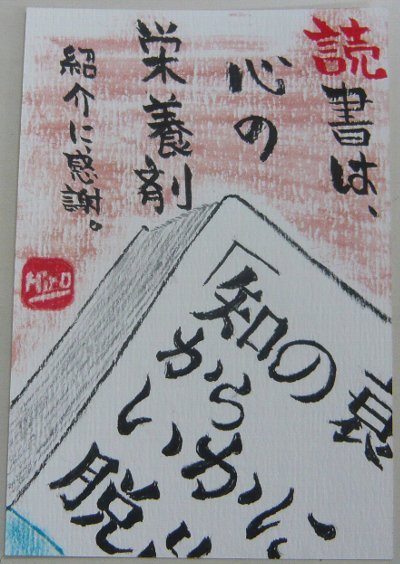 読書は、
心の
栄養剤
紹介に感謝。
Hiro
「知の衰
から
いかに
脱